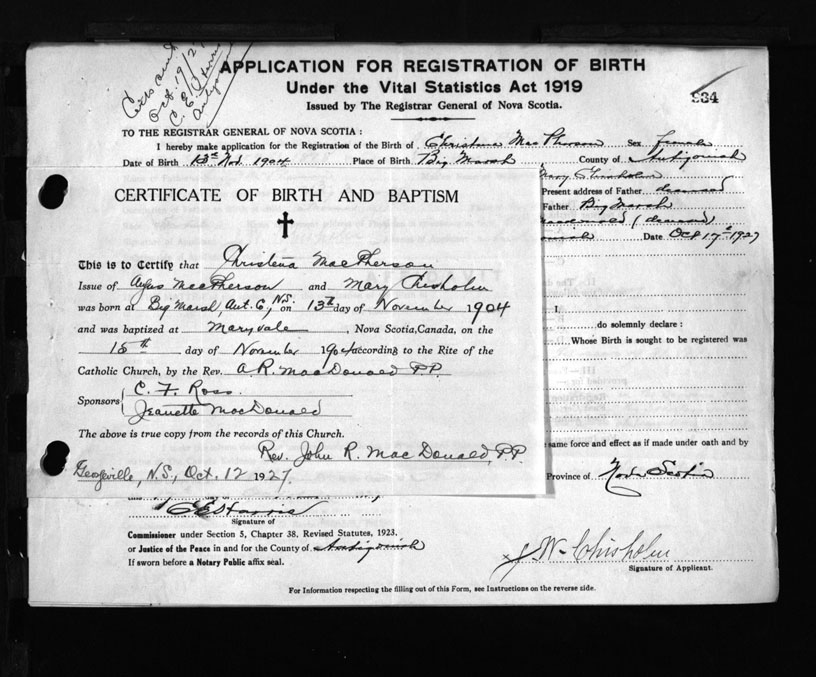 Oct. 19/27
C. E. Harris
Antigonish
APPLICATION FOR REGISTRATION OF BIRTH
Under the Vital Statistics Act 1919
Issued by The Registrar General of Nova Scotia.
934
TO THE REGISTRAR GENERAL OF NOVA SCOTIA :
I hereby make application for the Registration of the Birth of Christena MacPherson Sex female
Date of Birth 13th Nov. 1904 Place of Birth Big Marsh County of Antigonish
Mary Chisholm
Present address of Father deceased
Father Big Marsh
Macdonald (deceased)
Date Oct 17th 1927
CERTIFICATE OF BIRTH AND BAPTISM
This is to Certify that Christena MacPherson
Issue of Angus MacPherson and Mary Chisholm
was born at Big Marsh, Ant. Co, N.S. on 13th day of November 1904
and was baptized at Maryvale, Nova Scotia, Canada, on the
15th day of November 1904 according to the Rite of the
Catholic Church, by the Rev. A.R. MacDonald P.P.
Sponsors C. F. Ross.
Jeanette MacDonald
The above is true copy from the records of this Church.
Rev. John R. MacDonald, P.P.
Georgeville, N.S., Oct. 12 1927.
I,
do solemnly declare :
Whose Birth is sought to be registered was
same force and effect as if made under oath and by
Province of Nova Scotia
C E Harris
Signature of
Commissioner under Section 5, Chapter 38, Revised Statutes, 1923.
or Justice of the Peace in and for the County of Antigonish
If sworn before a Notary Public affix seal.
x J W. Chisholm
Signature of Applicant.
For Information respecting the filling out of this Form, see Instructions on the reverse side.